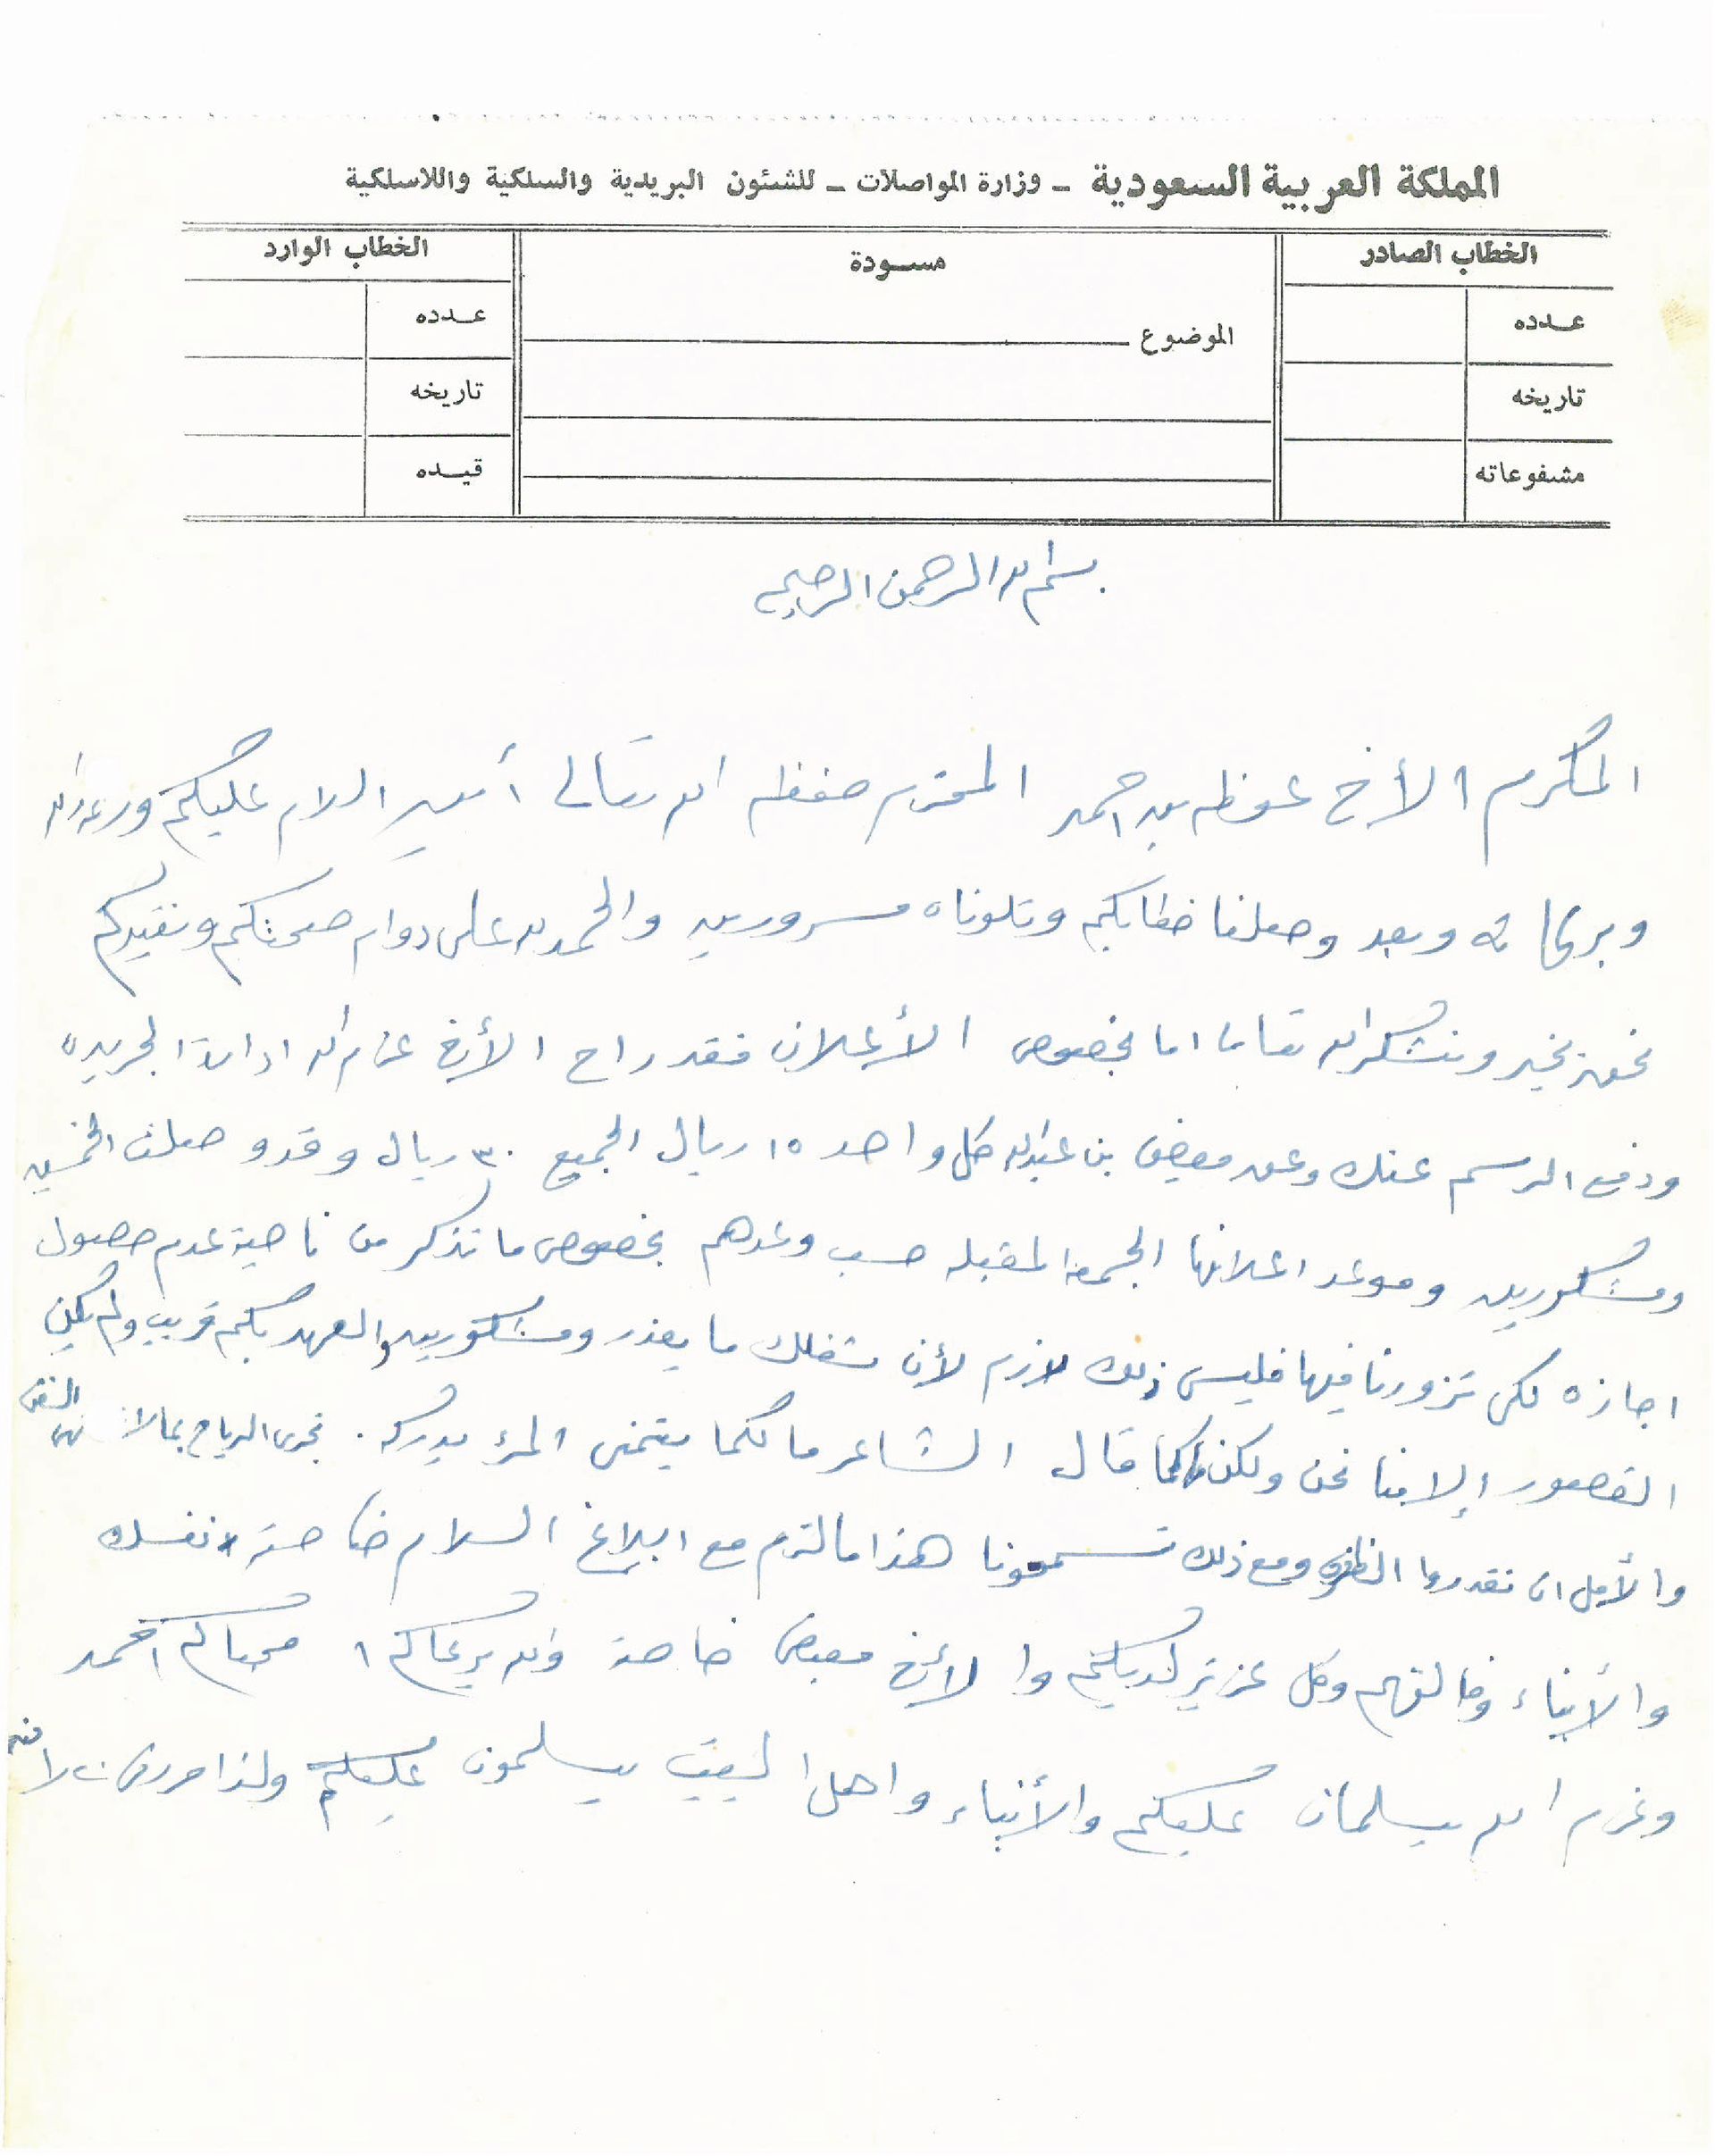 المملكة العربية السعودية - وزارة المواصلات - للشئون البريدية والسلكية واللاسلكية
الخطاب الصادر
عدده
تاريخه
مشفوعاته
مسودة
الموضوع
الخطاب الوارد
عدده
تاريخه
قيده
بسم الله الرحمن الرحيم
المكرم الأخ عوظه بن احمد المحترم حفظه الله تعالى آمين السلام عليكم ورحمة الله
وبركاته وبعد وصلنا خطابكم وتلوناه مسرورين والحمد لله على دوام صحتكم ونفيدكم
نحن بخير ونشكر الله تعالى اما بخصوص الأعلان فقد راح الأخ غرم الله ادارة الجريده
ودفع الرسم عنك وعن معيض بن عبدالله كل واحد ١٥ ريال الجميع ٣٠ ريال وقد وصلت الخمسين
ومشكورين وموعد اعلانها الجمعه المقبله حسب وعدهم بخصوص ما تذكر من ناحية عدم حصول
اجازه لكي تزورنا فيها فليس ذلك لازم لأن شغلك ما يعذر ومشكورين والعهد بكم قريب ولم يكن
القصور إلا منا نحن ولكن كما قال الشاعر ما كلما يتمنى المرء يدركه . تجري الرياح بمالا تشتهي السفن
والأمل ان تقدروا الظروف ومع ذلك تسمحونا هذا مالزم مع ابلاغ السلام خاصة نفسك
والأبناء وخالتهم وكل عزيز لديكم والأخ معيض خاصة والله يرعاكم محبكم احمد
وغرم الله يسلمان عليكم والأبناء واهل البيت يسلمون عليكم ولذا حرر